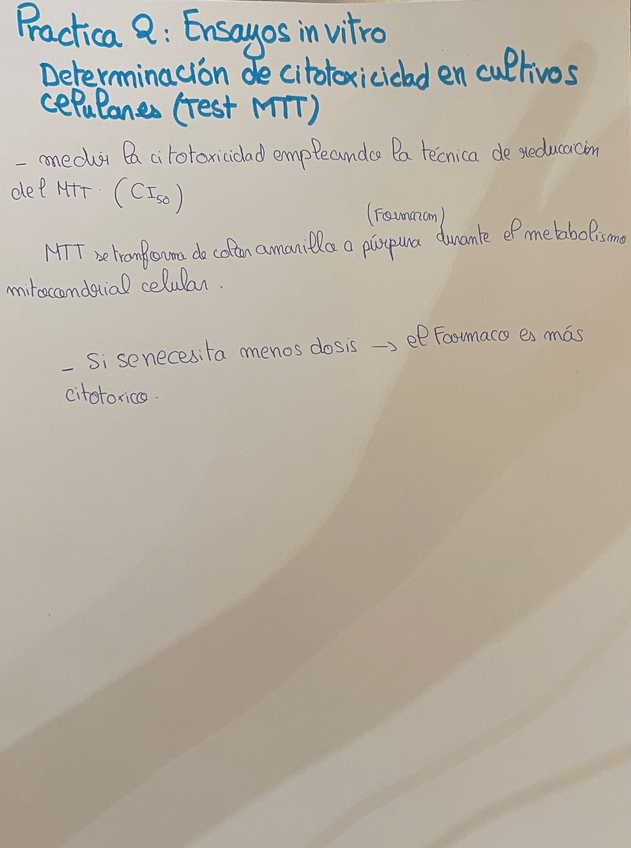 Practica 2: Ensayos in vitro
Determinación de citotoxicidad en cultivos
celulares (Test MTT)
- medir la citotoxicidad empleando la técnica de reducción
del MTT. (CI50)
(Formazan)
MTT se tranforma de color amarilla a púrpura durante el metabolismo
mitocondrial celular.
- Si se necesita menos dosis → el Farmaco es más
citotoxico.